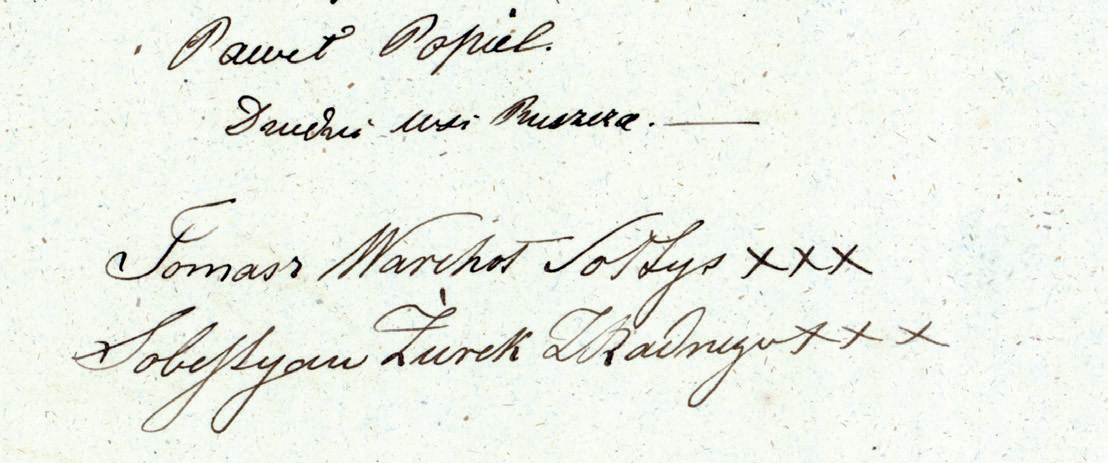 Paweł Popiel.
Dziedzic wsi Ruszcza. —
Tomasz Warchoł Sołtys XXX
Sobestyan Żurek XXX